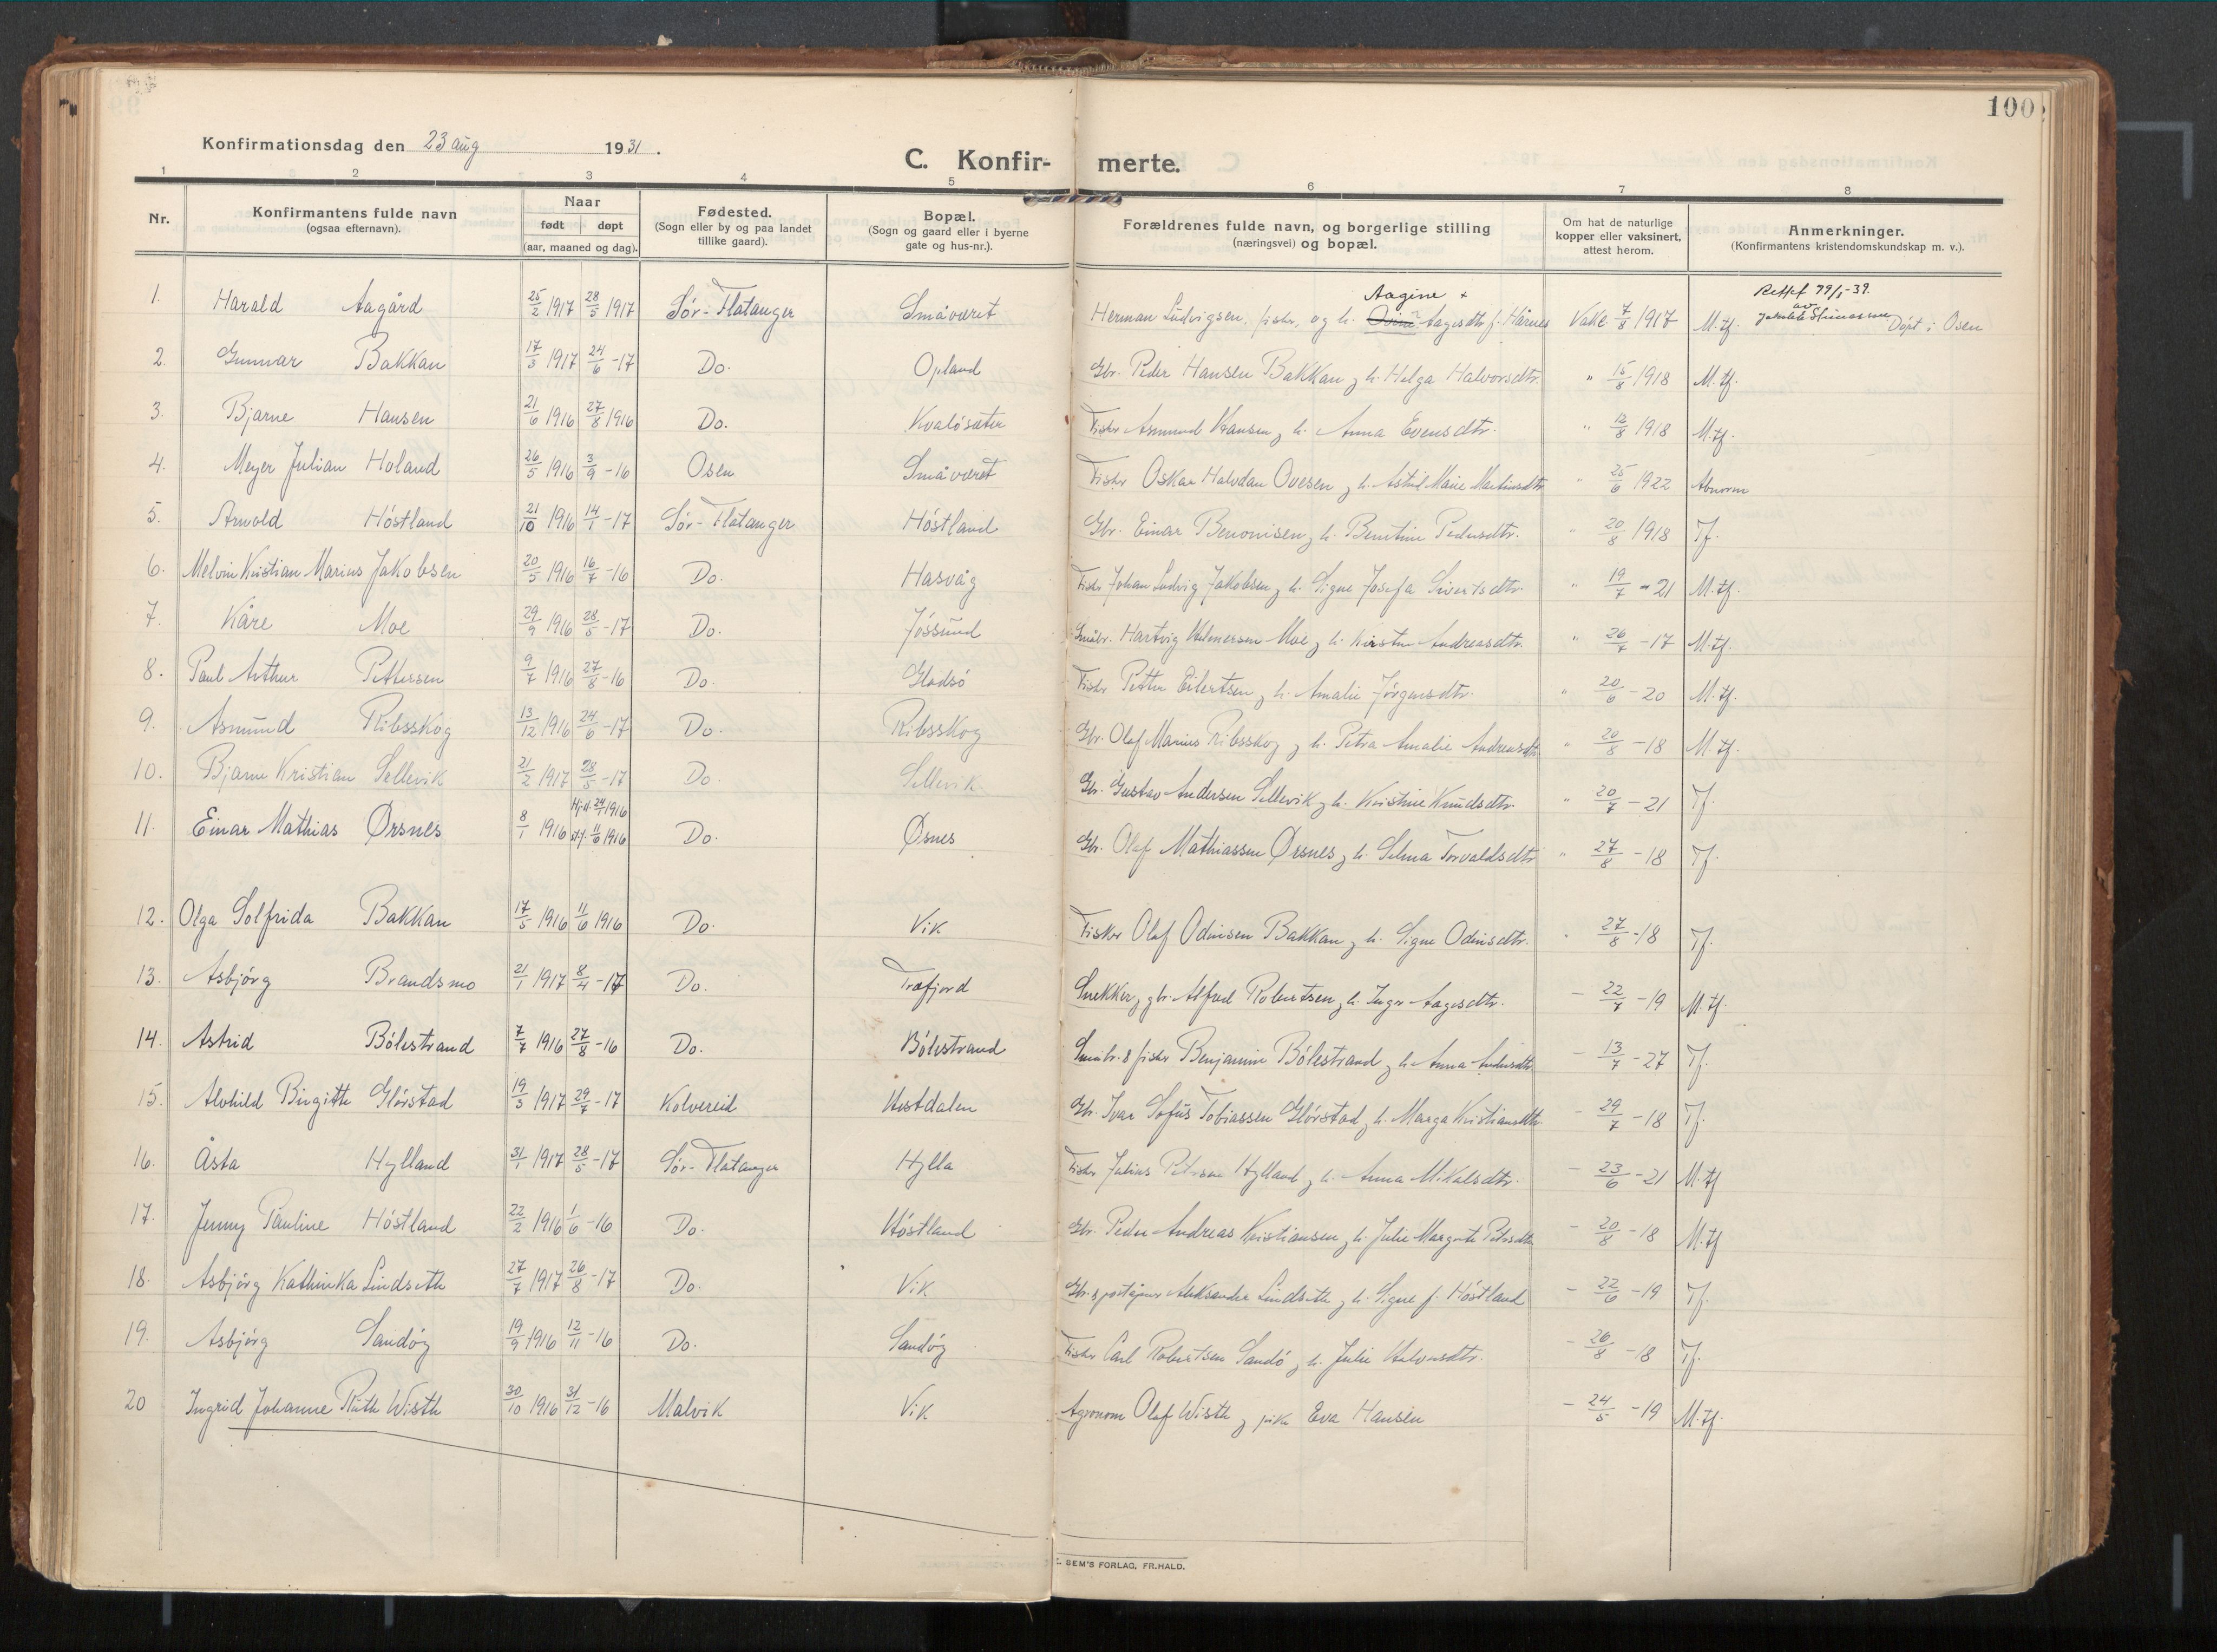 100
Konfirmationsdag den 23 aug 1931.
C. Konfir- merte.
1 2 3 4 5 6 7 8
Nr. Konfirmantens fulde navn (ogsaa efternavn). Naar født døpt (aar, maaned og dag). Fødested. (Sogn eller by og paa landet tillike gaard). Bopæl. (Sogn og gaard eller i byerne gate og hus-nr.). Forældrenes fulde navn, og borgerlige stilling (næringsvei) og bopæl. Om hat de naturlige kopper eller vaksinert, attest herom. Anmerkninger. (Konfirmantens kristendomskundskap m. v.).
Aagine +
Rettet 79/1-39. av
1. Harald Aagård 25/2 1917 28/5 1917 Sør-Flatanger Småværet Herman Ludvigsen, fisker, og h. Aagesdtr f. Hårnes Vakc. 7/8 1917 M.tf. Døpt i Osen
2. Gunnar Bakkan 17/3 1917 24/6-17 Do. Opland Gbr. Peder Hansen Bakkan og h. Helga Halvorsdtr. " 15/8 1918 M.tf.
3. Bjarne Hansen 21/6 1916 27/8 1916 Do. Kvaløsæter Fisker Asmund Hansen og h. Anna Evensdtr. " 12/8 1918 M.tf.
4. Meyer Julian Holand 26/5 1916 3/9-16 Osen Småværet Fisker Oskar Halvdan Ovesen og h. Astrid Marie Martinsdtr " 25/6 1922 Abnorm
5. Arnold Høstland 21/10 1916 14/1-17 Sør-Flatanger Høstland Gbr. Einar Benonisen og h. Berntine Pedersdtr. " 20/8 1918 Tf.
6. Melvin Kristian Marius Jakobsen 20/5 1916 16/7-16 Do. Hasvåg Fisker Johan Ludvig Jakobsen og h. Signe Josefa Sivertsdtr. " 19/7-21 M.tf.
7. Kåre Moe 29/9 1916 28/5-17 Do. Jøssund Småbr. Hartvig Hilmersen Moe og h. Kirsten Andreasdtr. " 26/7-17 M.tf.
8. Paul Arthur Pettersen 9/7 1916 27/8-16 Do. Gladsø Fisker Petter Eilertsen og h. Amalie Jørgensdtr. " 20/6-20 M.tf.
9. Asmund Ribsskog 13/12 1916 24/6-17 Do. Ribsskog Gbr. Olaf Marius Ribsskog og h. Petra Amalie Andreasdtr " 20/8-18 M.tf.
10. Bjarne Kristian Sellevik 21/2 1917 28/5-17 Do. Sellevik Gbr. Gustav Andersen Sellevik og h. Kristine Knudsdtr. " 20/7-21 Tf.
11. Einar Mathias Ørsnes 8/1 1916 Hjd. 24/1 1916 stf. 11/6 1916 Do. Øsnes Gbr. Olaf Mathiassen Ørsnes og h. Selma Torvaldsdtr " 27/8-18 Tf.
12. Olga Solfrida Bakkan 17/5 1916 11/6 1916 Do. Vik Fisker Olaf Odinsen Bakkan og h. Signe Odinsdtr. " 27/8-18 Tf.
13. Asbjørg Brandsmo 21/1 1917 8/4-17 Do. Træfjord Snekker og gbr. Alfred Robertsen og h. Inger Aagesdtr. - 22/7-19 M.tf.
14. Astrid Bølestrand 7/7 1916 27/8-16 Do. Bølestrand Småbr. & fisker Benjamin Bølestrand og h. Anna Andersdtr - 13/7-27 Tf.
15. Alvhild Birgitte Glørstad 19/3 1917 29/7-17 Kolvereid Utstdalen Gbr. Ivar Sofus Tobiassen Glørstad og h. Marga Kristiansdtr. - 29/7-18 Tf.
16. Åsta Hylland 31/1 1917 28/5-17 Sør-Flatanger Hylla Fisker Julius Petersen Hylland og h. Anna Mikalsdtr. - 23/6-21 M.tf
17. Jenny Pauline Høstland 22/2 1916 1/6-16 Do. Høstland Gbr. Peder Andreas Kristiansen og h. Julie Margrete Petersdtr - 20/8-18 M.tf
18. Asbjørg Kathinka Lindseth 27/7 1917 26/8-17 Do. Vik Gbr. & Aleksander Lindseth og h. Signe f. Høstland - 22/6-19 Tf.
19. Asbjørg Sandøy 19/9 1916 12/11-16 Do. Sandøy Fisker Carl Robertsen Sandø og h. Julie Halvorsdtr. - 26/8-18 Tf.
20 Ingrid Johanne Ruth Wisth 30/10 1916 31/12-16 Malvik Vik Agronom Olaf Wisth og pike Eva Hansen - 24/5-19 M.tf.
SEM'S FORLAG, FR.HALD.